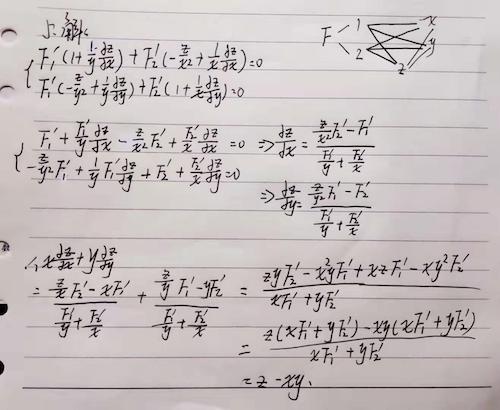 5. 解:
F 1 2 x y z
{ F₁'(1+1/y ∂z/∂x)+F₂'(-z/x²+1/x ∂z/∂x)=0
F₁'(-z/y²+1/y ∂z/∂y)+F₂'(1+1/x ∂z/∂y)=0
{ F₁'+F₁'/y ∂z/∂x - z/x² F₂'+F₂'/x ∂z/∂x =0 => ∂z/∂x = (z/x² F₂'-F₁')/(F₁'/y+F₂'/x)
-z/y² F₁'+1/y F₁' ∂z/∂y+F₂'+F₂'/x ∂z/∂y=0
=> ∂z/∂y = (z/y² F₁'-F₂')/(F₁'/y+F₂'/x)
∴ x ∂z/∂x + y ∂z/∂y
= (z/x F₂'-xF₁')/(F₁'/y+F₂'/x) + (z/y F₁'-yF₂')/(F₁'/y+F₂'/x) = (zyF₂'-x²yF₁'+xzF₁'-xy²F₂')/(xF₁'+yF₂')
= (z(xF₁'+yF₂')-xy(xF₁'+yF₂'))/(xF₁'+yF₂')
= z-xy.